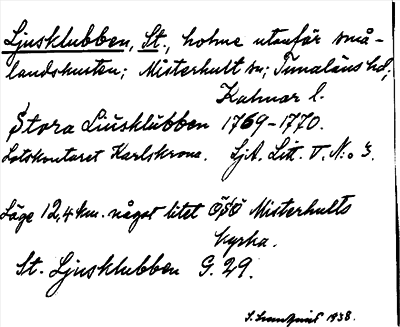 Ljusklubben, St., holme utanför små-
landskusten; Misterhult sn; Tunaläns hd;
Kalmar l.
Stora Liusklubben 1769-1770.
Lotskontoret Karlskrona. SjA. Litt. V. N:o 3.
Läge 12,4 km. något litet ÖSÖ Misterhults
kyrka.
St. Ljusklubben G. 29.
1938.